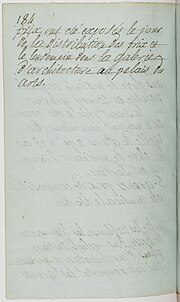 184
prix, ont été exposés le jour
de la distribution des prix et
le lendemain dans la galerie
d'architecture au palais des
arts.